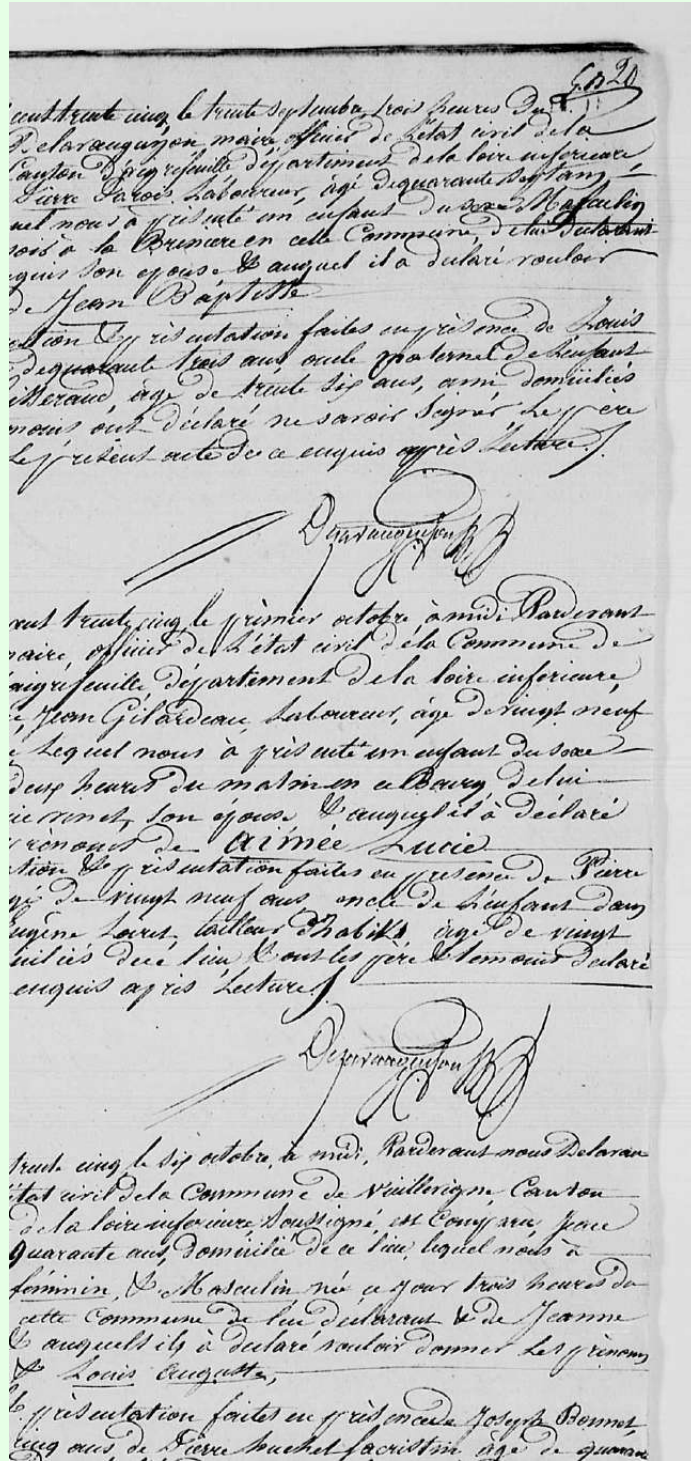 20
cent trente cinq, le trente septembre trois heures du
Delarauguyon, maire, officier de l'état civil de la
Canton d'aigrefeuille, département de la loire inferieure,
Pierre Laboureur, âgé de quarante sept ans
quel nous à présenté un enfant du sexe Masculin
à la en cette Commune, de lui déclarant
son épouse & auquel il a déclaré vouloir
de Jean Baptiste
ation & présentation faites en présence de Louis
de quarante trois ans, oncle paternel de l'enfant
âgé de trente six ans, ami domiciliés
moins ont déclaré ne savoir signer Le père
Le présent acte de ce enquis après Lecture ./.
Delarauguyon
cent trente cinq le prèmier octobre à midi, Pardevant
maire, officier de L'état civil déla Commune de
d'aigrefeuille, département de la loire inferieure,
Jean Gilardeau, Laboureur, âgé de vingt neuf
Lequel nous à présenté un enfant du sexe
deux heures du matin en ce Bourg, de lui
vinet, son épouse & auquel il à déclaré
prénoms de Aimée Lucie
ation & présentation faites en présence de Pierre
gé de vingt neuf ans oncle de L'enfant dans
Eugène Loret, tailleur d'habits âgé de vingt
ciliés de ce lieu & ont les père & temoins déclaré
enquis après Lecture ./.
Delarauguyon
trente cinq le six octobre, à midi, Pardevant nous Delarau
état civil déla Commune de Vieillevigne, Canton
de la loire inferieure, Soussigné, est Comparu,
quarante ans, domicilié de ce lieu, lequel nous à
féminin, & Masculin née ce jour trois heures du
cette Commune de lui déclarant & de Jeanne
& auquels ils à déclaré vouloir donner Les prénoms
& Louis auguste,
& présentation faites en présence de Joseph Bonnet,
cinq ans de Pierre huchet sacristin âgé de quarante